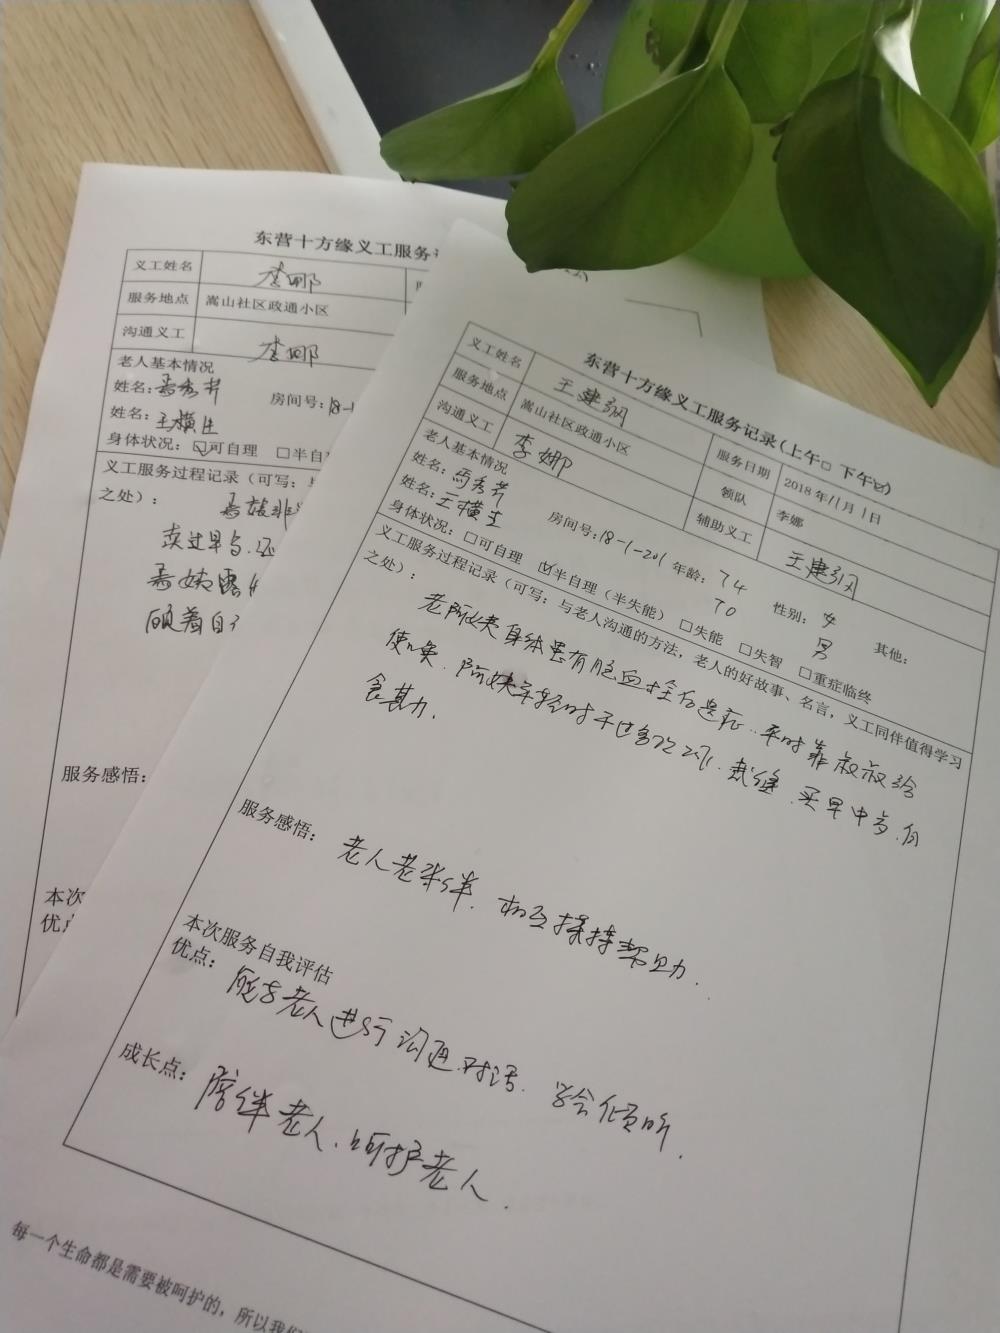 东营十方缘义工服务
义工姓名 李娜
服务地点 嵩山社区政通小区
沟通义工 李娜
老人基本情况
姓名：马秀芹 房间号：18-1
姓名：王横生
身体状况：☑可自理 □半自
义工服务过程记录（可写：与
之处）：
卖过早点.还
顾着自
服务感悟：
本次
优点
东营十方缘义工服务记录（上午□ 下午☑）
义工姓名 王建钢 服务日期 2018年11月1日
服务地点 嵩山社区政通小区 领队 李娜
沟通义工 李娜 辅助义工 王建钢
老人基本情况
姓名：马秀芹 房间号：18-1-201 年龄：74 性别：女 其他：
姓名：王横生 70 男
身体状况：□可自理 ☑半自理（半失能） □失能 □失智 □重症临终
义工服务过程记录（可写：与老人沟通的方法，老人的好故事、名言，义工同伴值得学习
之处）：
老阿姨身体患有脑血栓后遗症.平时靠叔叔给
使唤.阿姨年轻时干过 裁缝.买早中点.自
食其力.
服务感悟： 老人老来伴.相互搀持帮助.
本次服务自我评估
优点： 能与老人进行沟通.对话.学会倾听.
成长点： 陪伴老人.呵护老人.
每一个生命都是需要被呵护的，所以我们